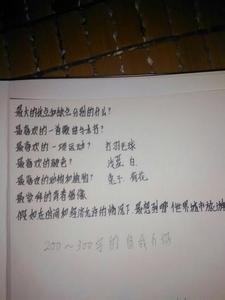 最大的优点和缺点分别是什么？
最喜欢的一首歌曲与书？
最喜欢的一项运动？ 打羽毛球
最喜欢的颜色？ 浅蓝、白
最喜欢的动物和植物？ 兔子、荷花
最崇拜的青春偶像
假如在时间和经济允许的情况下最想到哪个世界城市旅游
200～300字的自我介绍